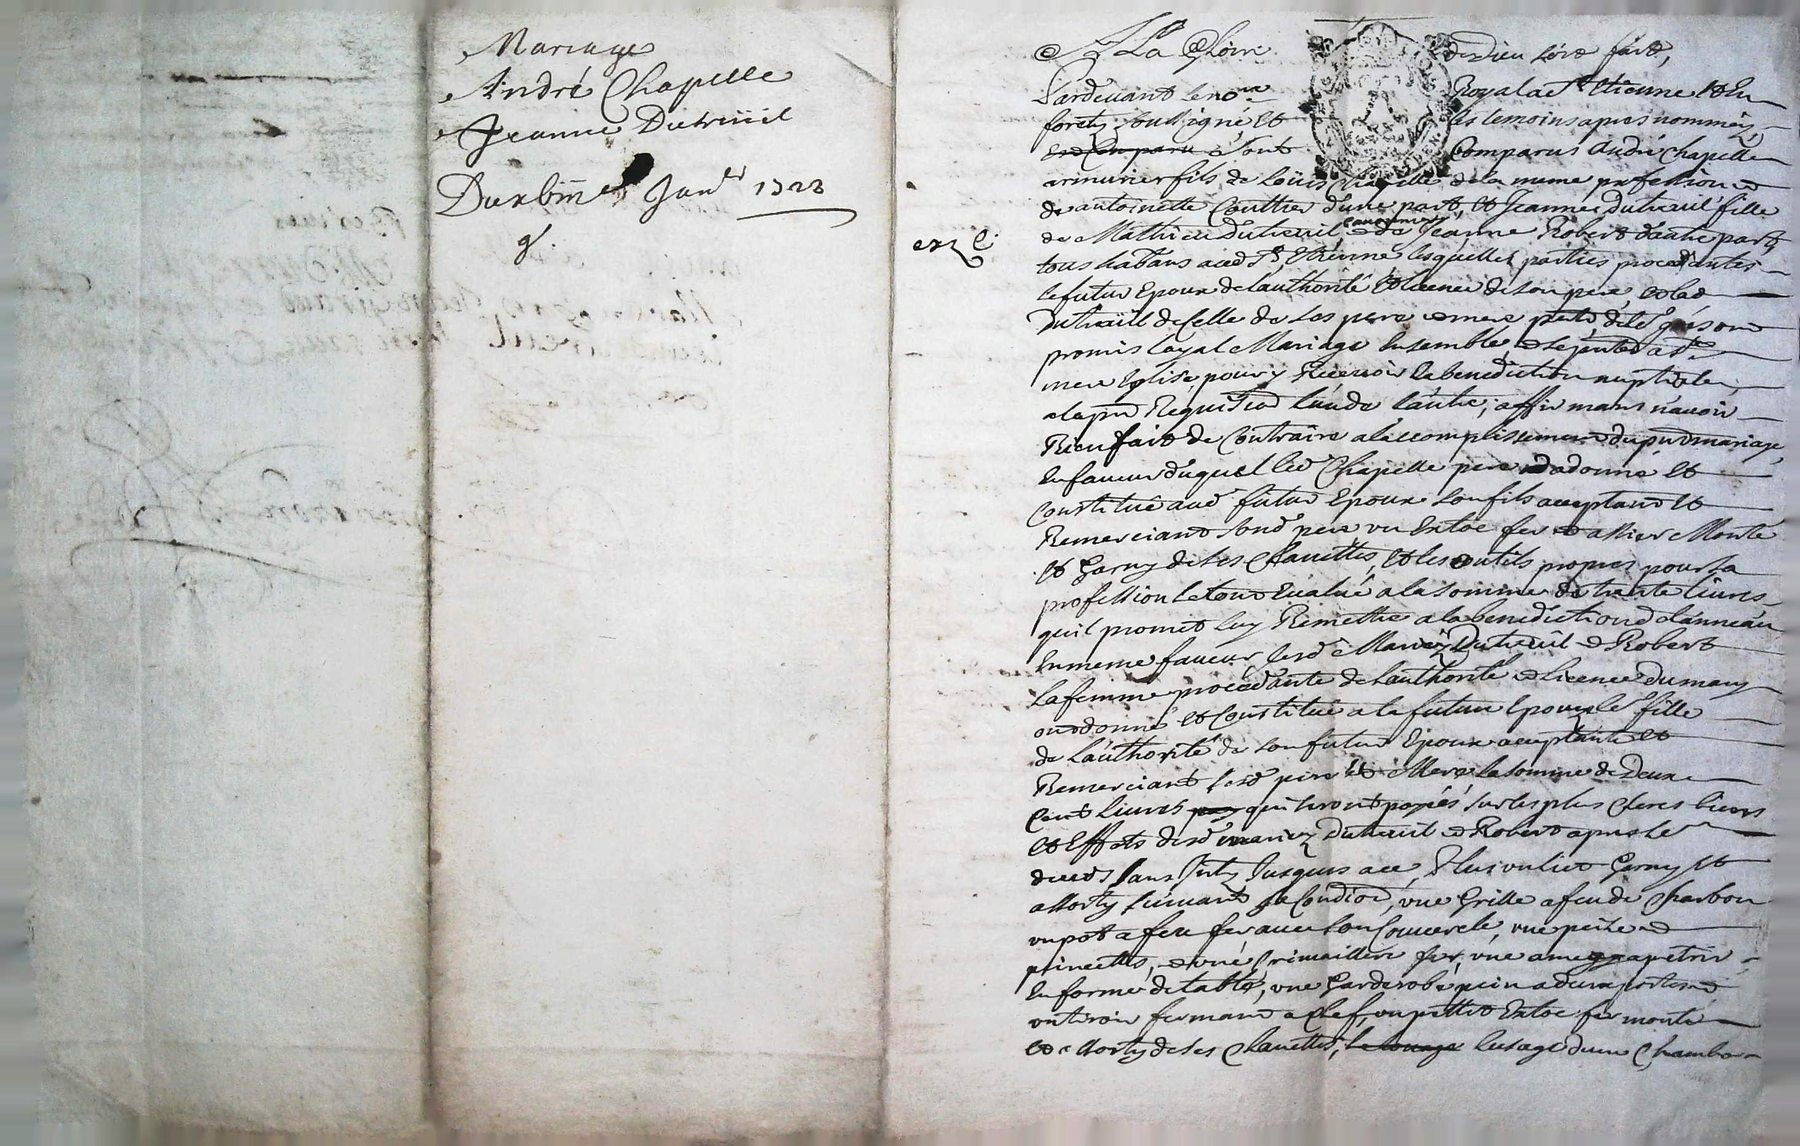 Mariage
André Chapelle
Jeanne Dutreüil
Du xbm^e Jan^er 1722
exp^e
A La Gloire de dieu soit fait,
Pardevant le no^re Royal a S^t Etienne Et En
forets soussigné Et les temoins apres nommés,
Sont Comparus André Chapelle
armurier fils de Loüis Chapelle de la meme profession et
de antoinette Couttier d'une part, Et Jeanne dutreuil fille
de Mathieu dutreuil canonnier et de Jeanne Robert d'autre part
tous habitans aud S^t Etienne lesquelles parties procedantes
le futur Epoux de l'authorité Et licence de son pere, Et lad
dutreüil de Celle de ses pere et mere ont
promis Loyal Mariage Ensemble, et se
mere Eglise pour y Recevoir la benediction nuptiale
a la p^re Requisi^on l'un de l'autre, affirmans n'avoir
Rien fait de Contraire a l'accomplissement du pnt mariage,
En faveur duquel led Chapelle pere a donné Et
Constitué aud futur Epoux son fils acceptant Et
Remerciant sond pere un Extoc fer Monté
Et Garny de ses Clavettes, Et les outils propres pour sa
profession le tout Evalué a la somme de trente livres
quil promet luy Remettre a la benediction d'anneau
En meme faveur lesd Mariez Dutreüil et Robert
la femme procedante de l'authorité et licence du mary
ont donné Et Constitué a la future Epouze fille
de l'authorité de son futur Epoux acceptante Et
Remerciant lesd pere Et Mere, la somme de Deux
Cent livres qui seront payés sur les plus Clercs biens
Et Effets desd mariez dutreuil et Robert apres le
deceds sans Jusques a ce, Plus un lict Garny Et
assorty suivant sa Condi^on, une Grille a feu de Charbon
un pot a feu fer avec son Couvercle, une et
pincettes, et une Crimaillere fer, une a petrir
En forme de table, une Garderobe pin a deux portes et
un tiroir fermant a Clef, un pettit Extoc fer monté
et assorty de ses Clavettes, l'usage d'une Chambre